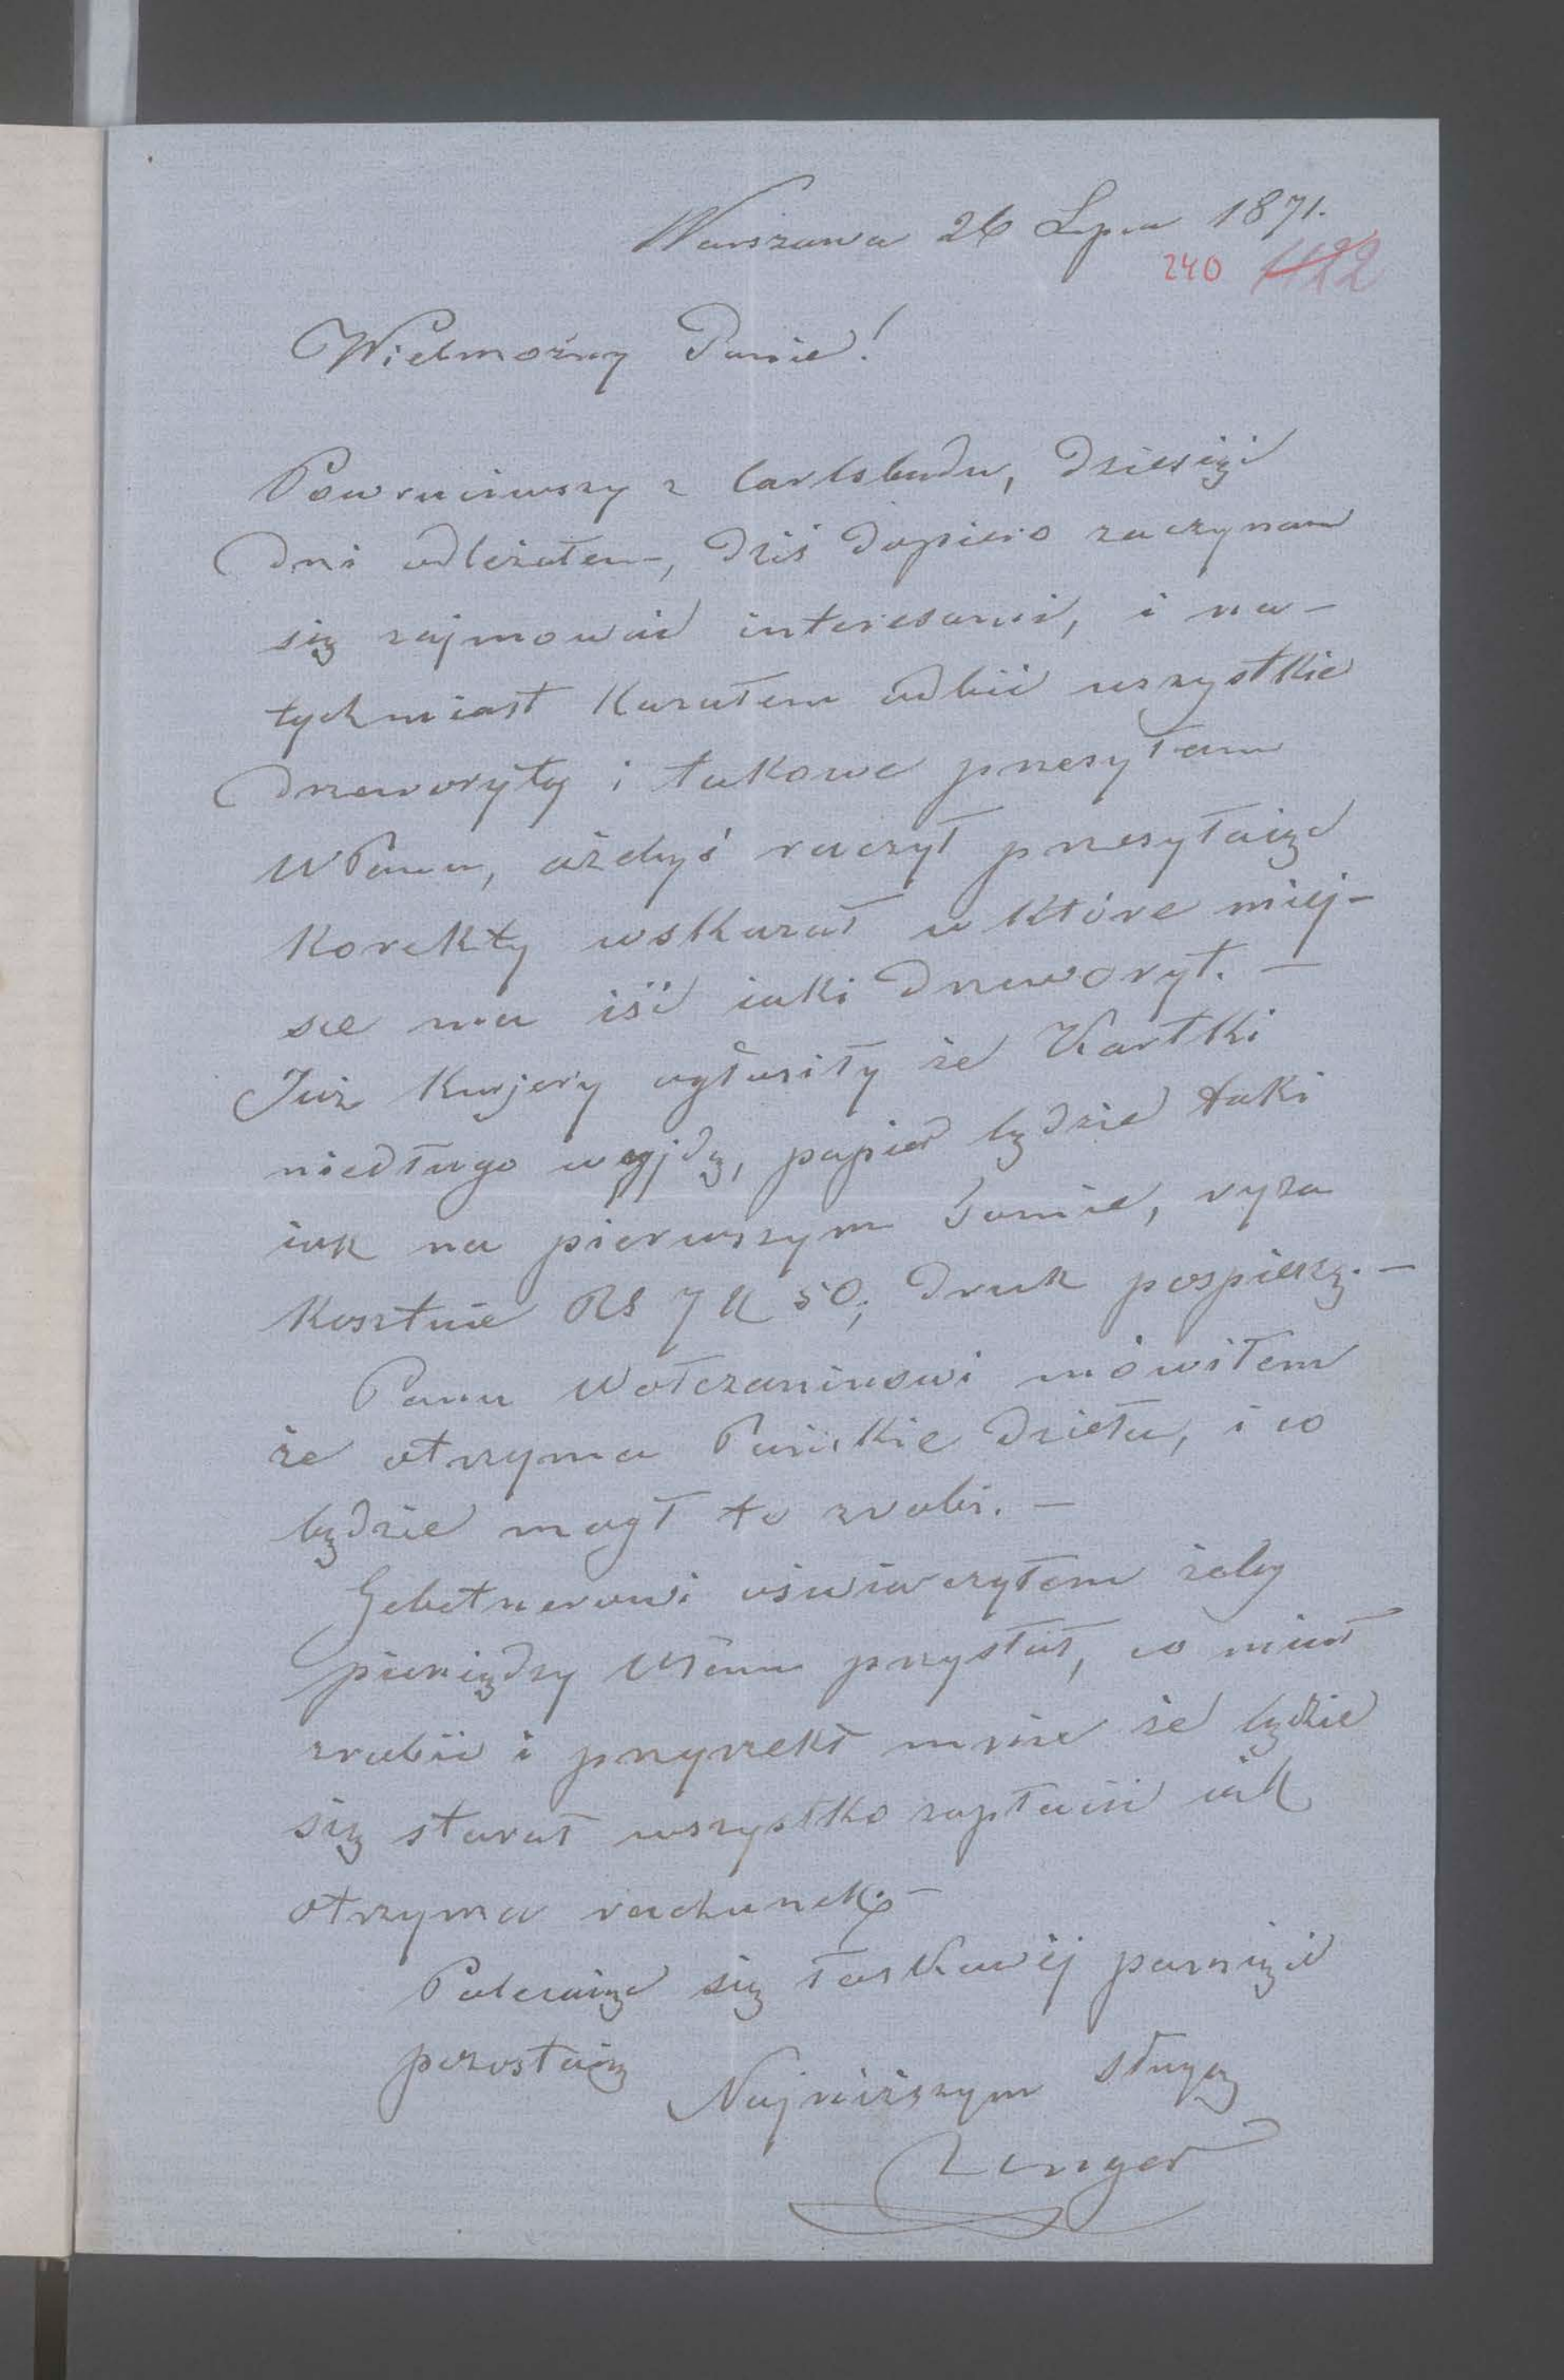 Warszawa 26 Lipca 1871.
240 1122
Wielmożny Panie!
Powruciwszy z Carlsbadu, dziesięć
dni odleżałem, dziś dopiero zaczynam
się zajmować interesami, i na-
tychmiast kazałem odbić wszystkie
drzeworyty i takowe przesyłam
WPanu, ażebyś raczył przesyłaiąc
korekty wskazał w które miej-
sce ma iść iaki drzeworyt. —
Już kurjery ogłosiły że Kartki
niedługo wyjdą, papier będzie taki
iak na pierwszym tomie, ryza
kosztuie Rs 7 k 50; druk pospieszę. —
Panu Wołczaninowi mówiłem
że otrzyma Pańskie dzieła, i co
będzie mógł to zrobi. —
Gebetnerowi oświadczyłem żeby
pieniędzy WPanu przysłał, co miał
zrobić i przyrzekł mnie że będzie
się starał wszystko zapłacić iak
otrzyma rachunek. —
Polecaiąc się łaskawéj pamięci
pozostaię
Najniższym sługą
Unger